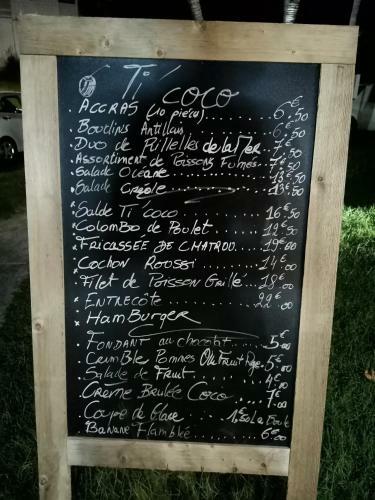 Ti' coco
. ACCRAS (10 pièces) ........ 6€50
. Boudins Antillais ........ 6€50
. Duo de Rillettes de la Mer .. 7€50
. Assortiment de Poissons Fumés .. 7€50
. Salade Océane ........ 13€50
. Salade Créole ........ 13€50
. Salde Ti' coco ........ 16€50
x Colombo de Poulet ....... 12€50
. FRICASSEE DE CHATROU ..... 19€00
x Cochon Roussi ........ 14€00
x Filet de Poisson Grillé .. 18€00
x ENTRECôTE ......... 22€00
x HamBurger
. FONDANT au chocolat ..... 5€00
. Crumble Pommes 5€00
. Salade de Fruit ........ 4€
. Crème Brulée Coco ...... 7€00
. Coupe de Glace ..... 1,50 La Boule
. Banane Flambée ........ 6€00